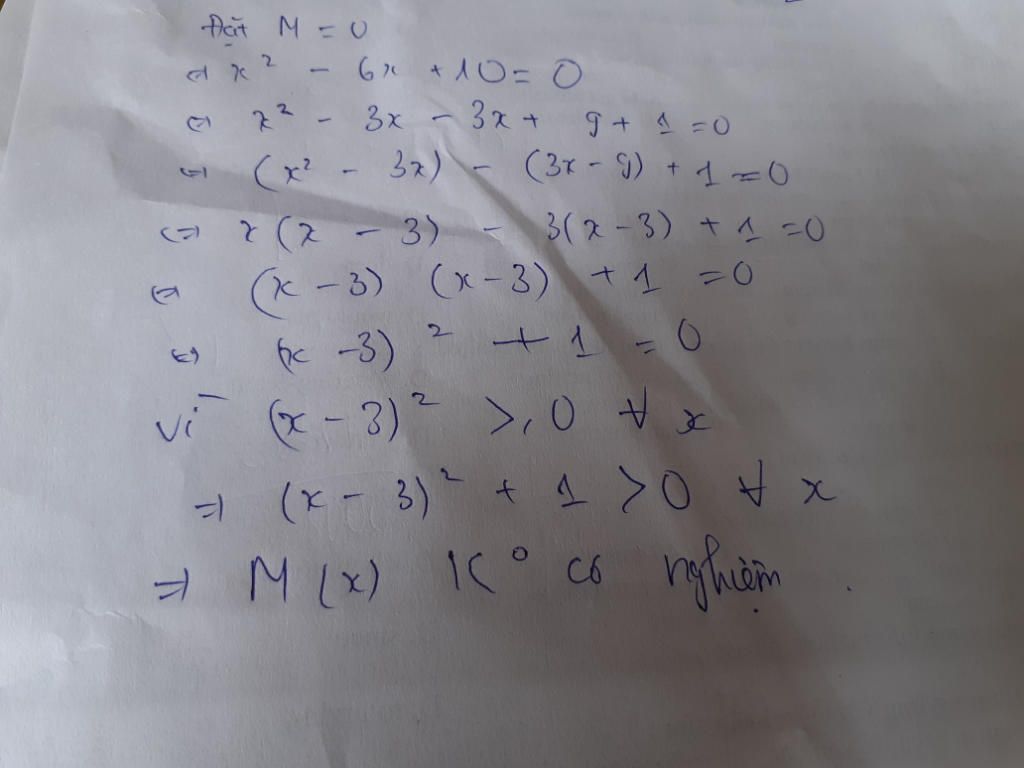 Đặt M = 0
⇔ x² - 6x + 10 = 0
⇔ x² - 3x - 3x + 9 + 1 = 0
⇔ (x² - 3x) - (3x - 9) + 1 = 0
⇔ x(x - 3) - 3(x - 3) + 1 = 0
⇔ (x - 3) (x - 3) + 1 = 0
⇔ (x - 3)² + 1 = 0
Vì (x - 3)² ≥ 0 ∀ x
⇒ (x - 3)² + 1 > 0 ∀ x
⇒ M(x) K° có nghiệm.